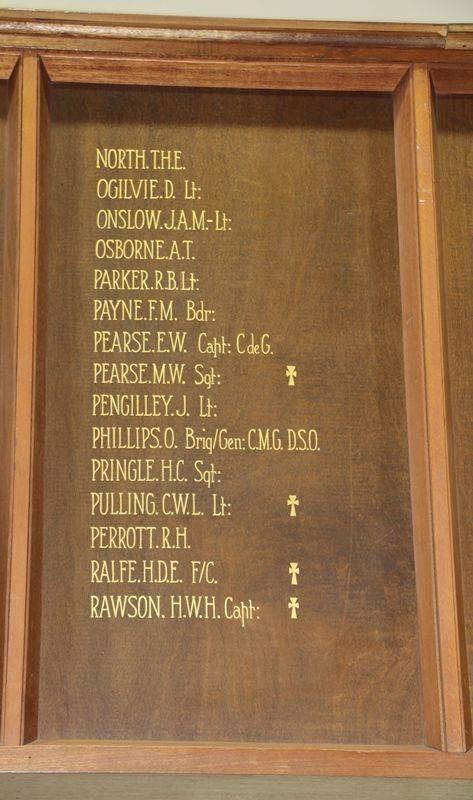 NORTH.T.H.E.
OGILVIE.D. Lt:
ONSLOW.J.A.M.-Lt:
OSBORNE.A.T.
PARKER.R.B.Lt:
PAYNE.F.M. Bdr:
PEARSE.E.W. Capt: C de G.
PEARSE.M.W. Sgt: ✝
PENGILLEY.J. Lt:
PHILLIPS.O. Brig/Gen: C.M.G. D.S.O.
PRINGLE.H.C. Sgt:
PULLING.C.W.L. Lt: ✝
PERROTT.R.H.
RALFE.H.D.E. F/C. ✝
RAWSON. H.W.H. Capt: ✝